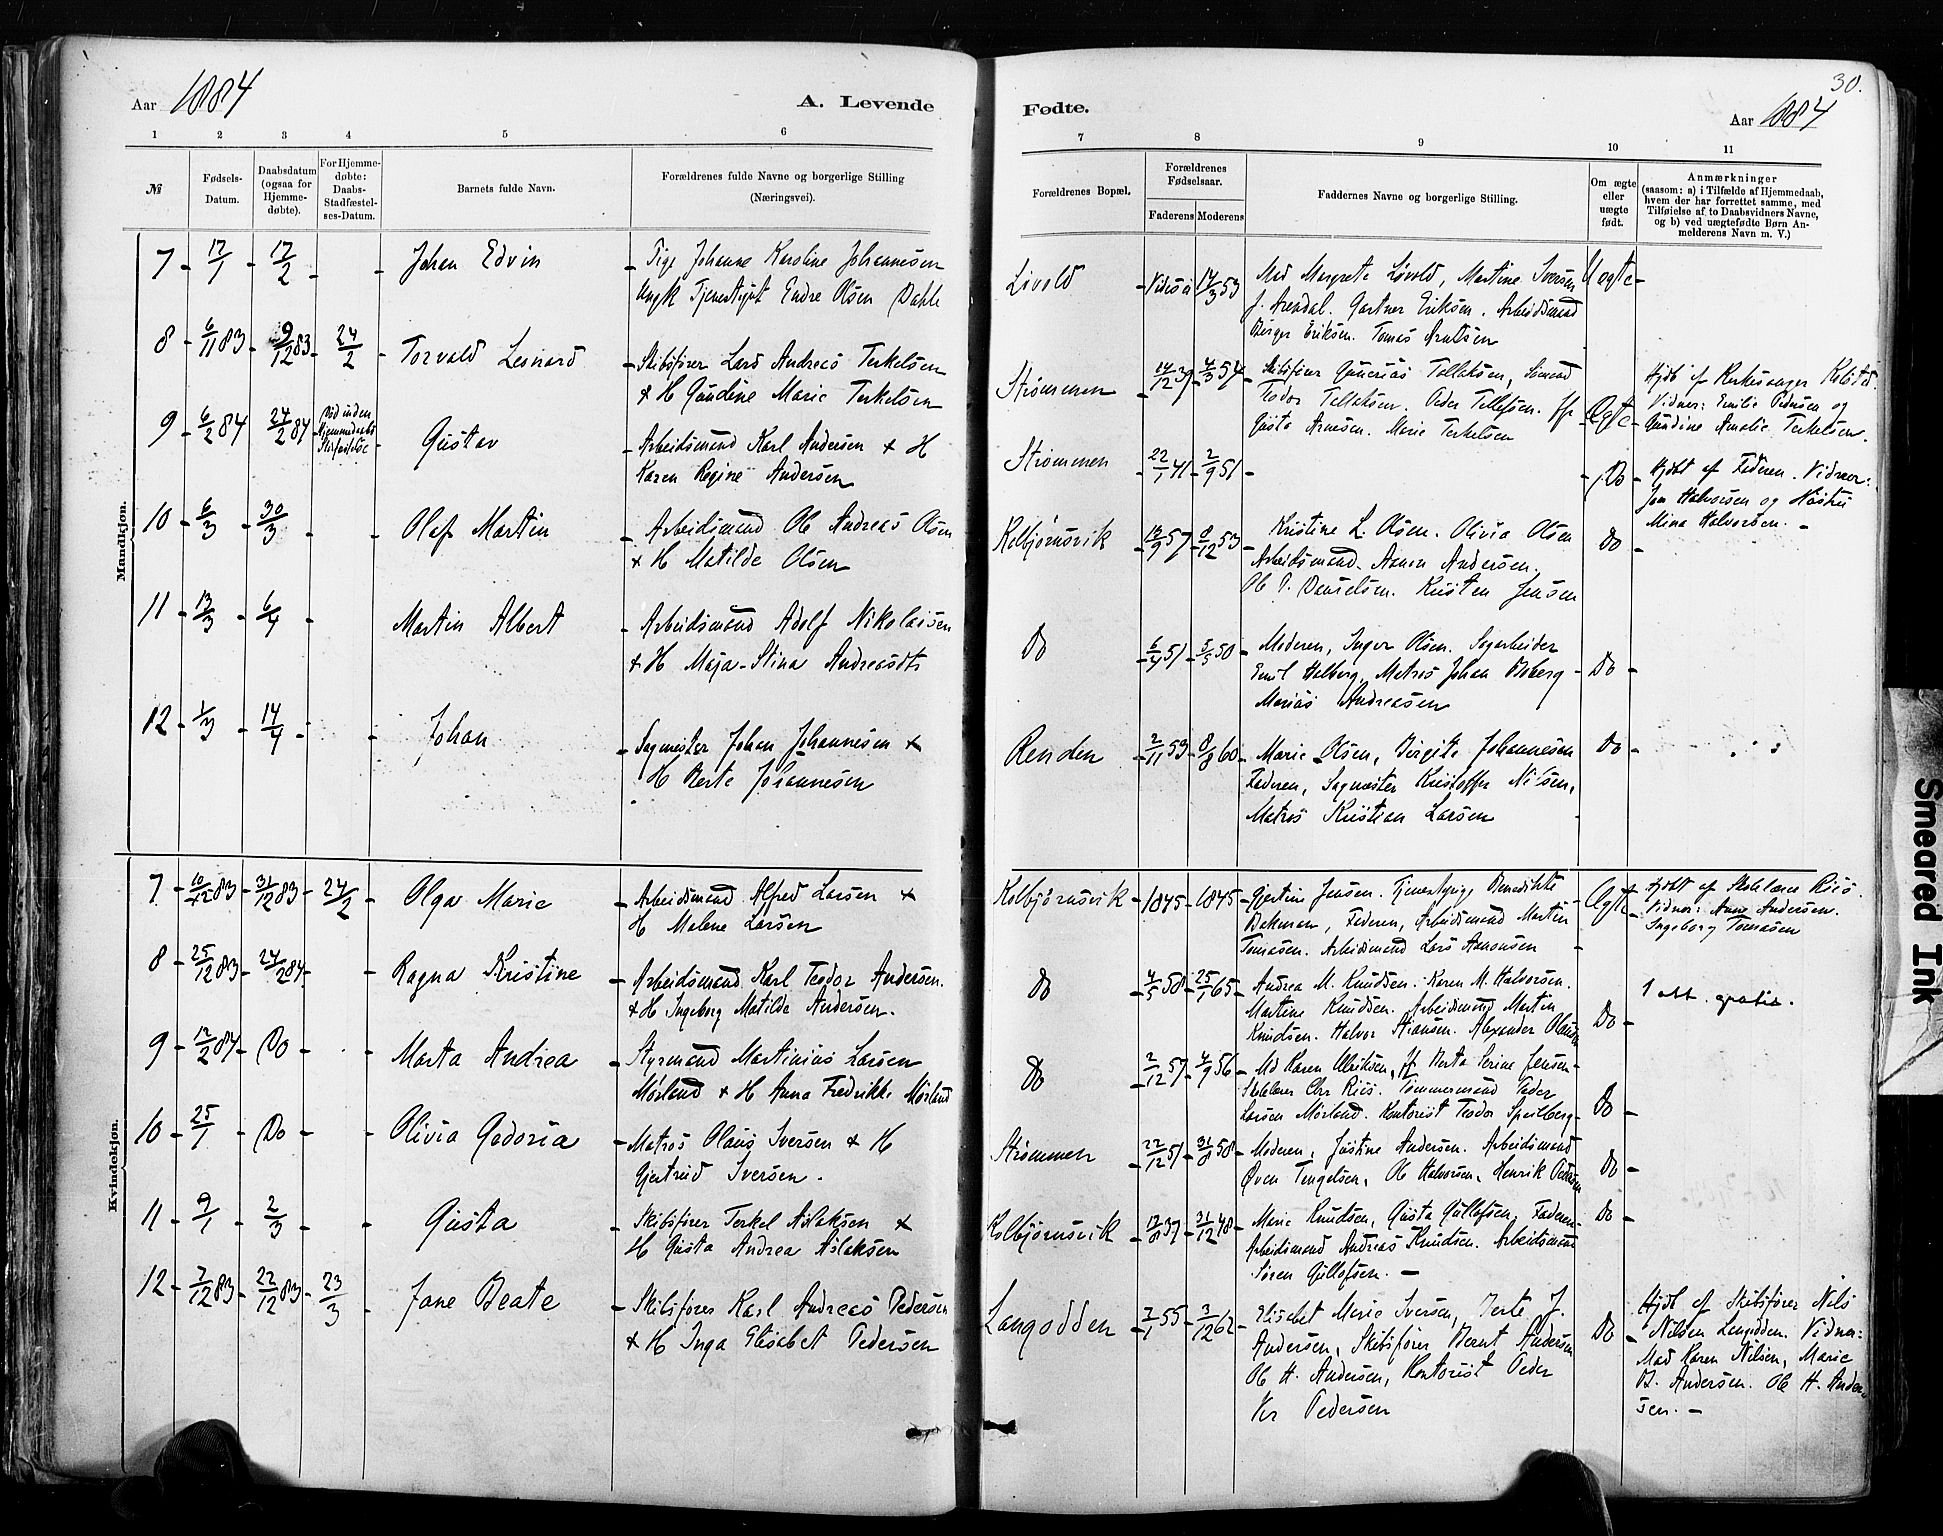 Aar 1884
A. Levende
Fødte.
Aar 1884
30.
1 2 3 4 5 6
7 8 9 10 11
№
Fødsels-
Datum.
Daabsdatum
(ogsaa for
Hjemme-
døbte).
For Hjemme-
døbte:
Daabs-
Stadfæstel-
ses-Datum.
Barnets fulde Navn.
Forældrenes fulde Navne og borgerlige Stilling
(Næringsvei).
Forældrenes Bopæl.
Forældrenes
Fødselsaar.
Faderens Moderens
Faddernes Navne og borgerlige Stilling.
Om ægte
eller
uægte
født.
Anmærkninger
(saasom: a) i Tilfælde af Hjemmedaab,
hvem der har forrettet samme, med
Tilføielse af to Daabsvidners Navne,
og b) ved uægtefødte Børn An-
melderens Navn m. V.)
Mandkjøn.
7 - 17/1 - 17/2 - - Johan Edvin - Pige Johanne Karoline Johannesen
Ungk Tjenestgut Endre Olsen Dahle
Livold 14/3 53 Mad Margrete Livold, Martine Iversen
f. Arendal. Gartner Eriksen. Arbeidsmand
Berger Eriksen. Tomas Arntsen
Uægte -
8 - 6/11 83 - 9/12 83 - 24/2 - Torvald Leonard - Skibsfører Lars Andreas Terkelsen
& H Gundine Marie Terkelsen
Strømmen - 14/12 39 - 4/3 54 - Skibsfører Tellefsen,
Teodor Tellefsen. Peder Tellefsen. Jfr
Gusta Arnesen. Marie Terkelsen
Ægte - Hjdbt af Kirkesanger Kolstad.
Vidner: Emilie Pedersen og
Gundine Amalie Terkelsen.
9 - 6/2 84 - 24/2 84 - Død inden
Hjemmedaabs
Stadfæstelse
Gustav - Arbeidsmand Karl Andersen & H
Karen Regine Andersen
Strømmen - 22/1 41 - 2/9 51 - - Do - Hjdbt af Faderen. Vidner:
Jon Halvorsen og Hustru
Mina Halvorsen. -
10 - 6/3 - 30/3 - - Olaf Martin - Arbeidsmand Ole Andreas Olsen
& H Matilde Olsen
Kolbjørnsvik - 13/9 57 - 8/12 53 - Kristine L. Olsen. Olivia Olsen
Arbeidsmand Aanon Andersen.
Ole P. Danielsen. Kristen Jensen
Do -
11 - 13/3 - 6/4 - - Martin Albert - Arbeidsmand Adolf Nikolaisen
& H Maja-Stina Andreasdtr
Do - 6/4 51 - 5/5 50 - Moderen, Inger Olsen. Sagarbeider
Emil Halberg, Matros Johan Boberg -
Marias Andreasen
Do -
12 - 1/3 - 14/4 - - Johan - Sagmester Johan Johannesen &
H Berte Johannesen
Renden - 2/11 53 - 8/8 60 - Marie Olsen, Birgite Johannesen
Faderen, Sagmester Kristoffer Nilsen,
Matros Kristian Larsen
Do -
Kvindekjøn.
7 - 10/12 83 - 31/12 83 - 24/2 - Olga Marie - Arbeidsmand Alfred Larsen &
H Malene Larsen
Kolbjørnsvik - 1845 - 1845 - Gjertine Jensen. Tjenestepige Benedikte
Bakman, Faderen, Arbeidsmand Martin
Tomasen. Arbeidsmand Lars Aanonsen
Ægte - Hjdbt af Skolelærer Riis.
Vidner: Anne Andersen.
Ingeborg Tomasen
8 - 25/12 83 - 24/2 84 - - Ragna Kristine - Arbeidsmand Karl Teodor Andersen.
& H Ingeborg Matilde Andersen.
Do - 4/5 58 - 25/1 65 - Andrea M. Knudsen. Karen M. Halvorsen.
Martine Knudsen. Arbeidsmand Martin
Knudsen. Halvor Stiansen. Alexander Olausen
Do - 1 att. gratis.
9 - 12/2 84 - Do - - Marta Andrea - Styrmand Martinius Larsen
Mørland & H Anna Fredrikke Mørland
Do - 2/12 57 - 4/9 56 - Md Karen Ulriksen, Jf Berta Serine Jensen -
Skolelærer Chr Riis. Tømmermand Peder
Larsen Mørland. Kontorist Teodor Speilberg -
Do -
10 - 25/1 - Do - - Olivia Gedoria - Matros Olaus Iversen & H
Gjertrud Iversen.
Strømmen - 22/12 51 - 31/8 58 - Moderen, Justine Andersen. Arbeidsmand
Øven Tengelsen, Ole Halvorsen, Henrik Pedersen
Do -
11 - 9/1 - 2/3 - - Gusta - Skibsfører Terkel Aslaksen &
H Gusta Andrea Aslaksen
Kolbjørnsvik - 13/8 37 - 31/12 48 - Marie Knudsen, Gusta Gullofsen, Faderen -
Arbeidsmand Andreas Knudsen. Arbeidsmand
Søren Gullofsen. -
Do -
12 - 7/12 83 - 22/12 83 - 23/3 - Jane Beate - Skibsfører Karl Andreas Pedersen
& H Inga Elisabet Pedersen
Langodden - 2/1 55 - 3/12 62 - Elisabet Marie Iversen, Berte J.
Andersen, Skibsfører Bernt Andersen
Ole H. Andersen, Kontorist Peder
Kr Pedersen
Do - Hjdbt af Skibsfører Nils
Nilsen Langodden. Vidner:
Mad Karen Nilsen, Marie
B. Andersen. Ole H. Ander-
sen. -
Smeared Ink